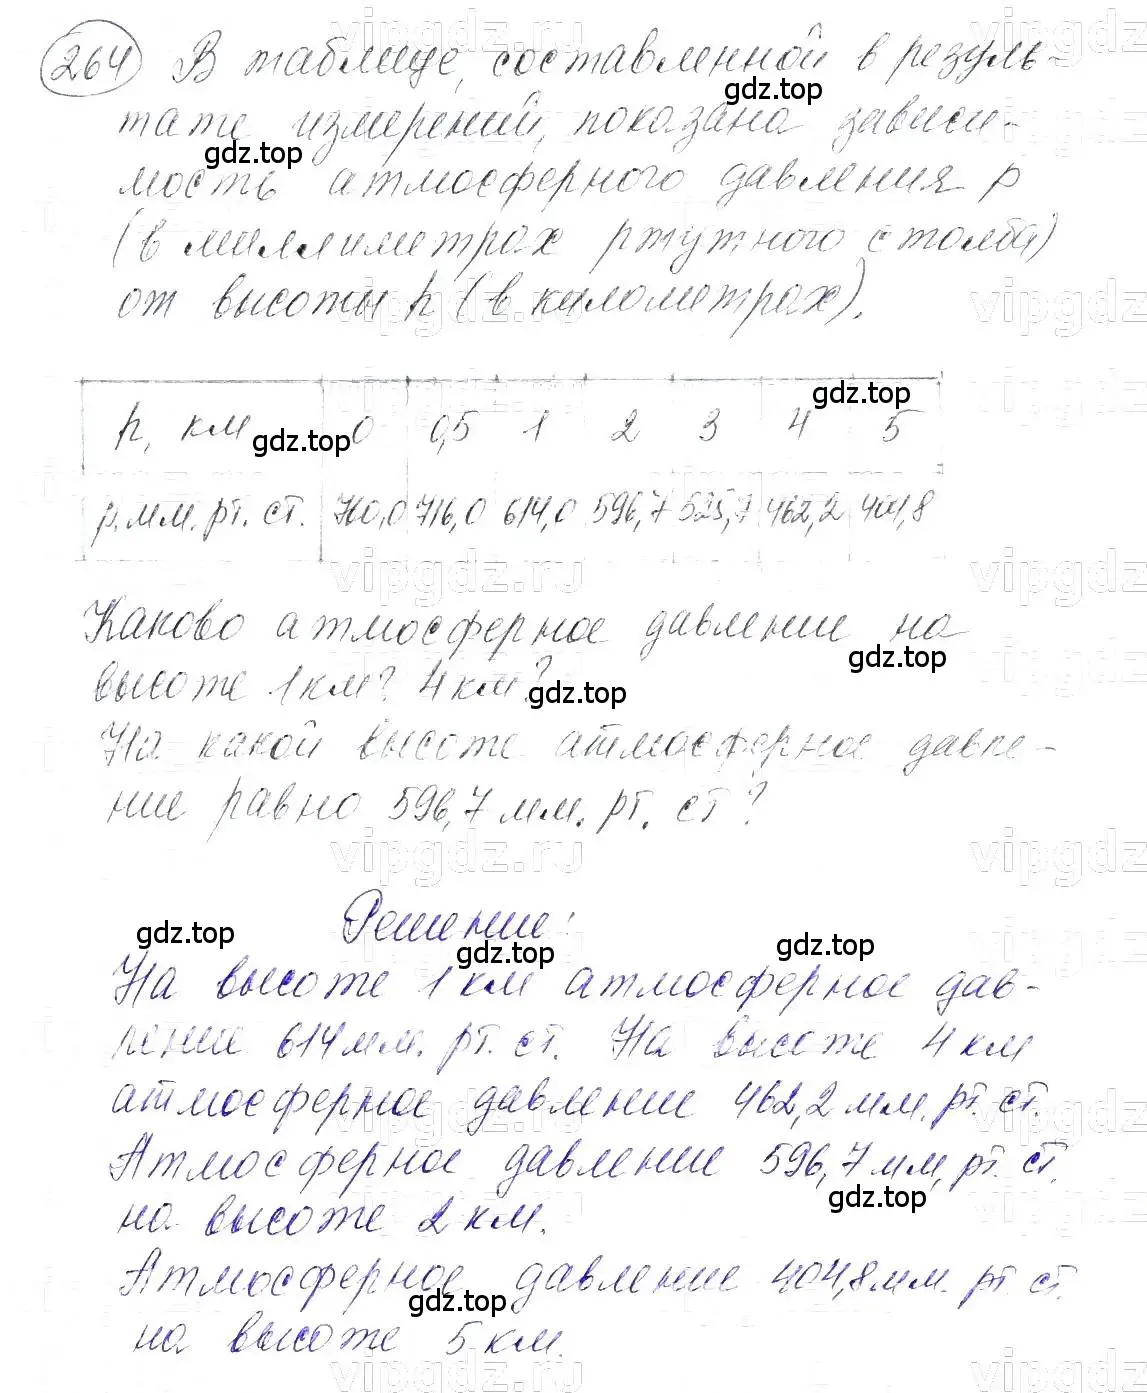 264 В таблице, составленной в резуль-
тате измерений, показана зависи-
мость атмосферного давления p
(в миллиметрах ртутного столба)
от высоты h (в километрах).
h, км 0 0,5 1 2 3 4 5
p. мм. рт. ст. 760,0 716,0 614,0 596,7 525,7 462,2 404,8
Каково атмосферное давление на
высоте 1 км? 4 км?
На какой высоте атмосферное давле-
ние равно 596,7 мм. рт. ст?
Решение:
На высоте 1 км атмосферное дав-
ление 614 мм. рт. ст. На высоте 4 км
атмосферное давление 462,2 мм. рт. ст.
Атмосферное давление 596,7 мм, рт. ст.
на высоте 2 км.
Атмосферное давление 404,8 мм. рт ст.
на высоте 5 км.
gdz.top
gdz.top
gdz.top
gdz.top
gdz.top
gdz.top
gdz.top
gdz.top
gdz.top
gdz.top
gdz.top
vipgdz.ru
vipgdz.ru
vipgdz.ru
vipgdz.ru